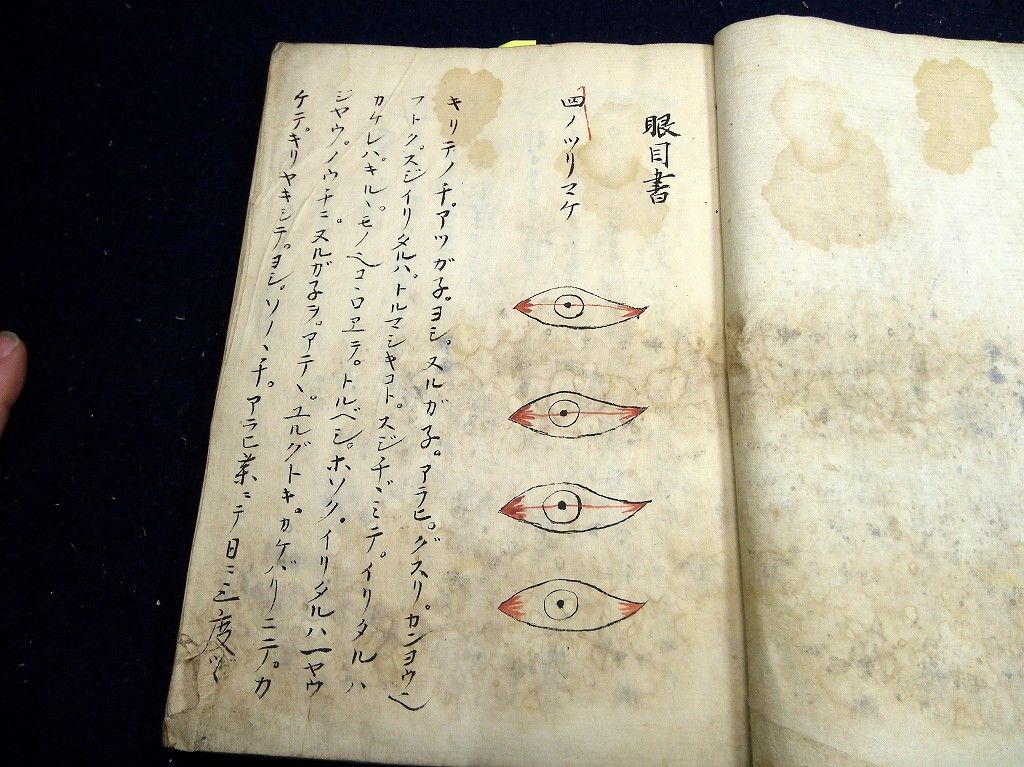 眼目書
四ノツリマケ
キリテノチ。アツガ子。ヨシ。ヌルガ子。アラヒ。グスリ。カンヨウ
フトク。スジイリタルハ。トルマシキコト。スジチヾミテ。イリタルハ
カケレバ。キルヽモノ コヽロヱテ。トルベシ。ホソク。イリタルハ一ヤウ
ジヤウ。ノウチニ。ヌルガ子ヲ。アテヽ。ユルグトキ。カゲバリニテ。カ
ケテ。キリヤキシテ。ヨシ。ソノヽチ。アラヒ薬ニテ日ニ三度ヅヽ